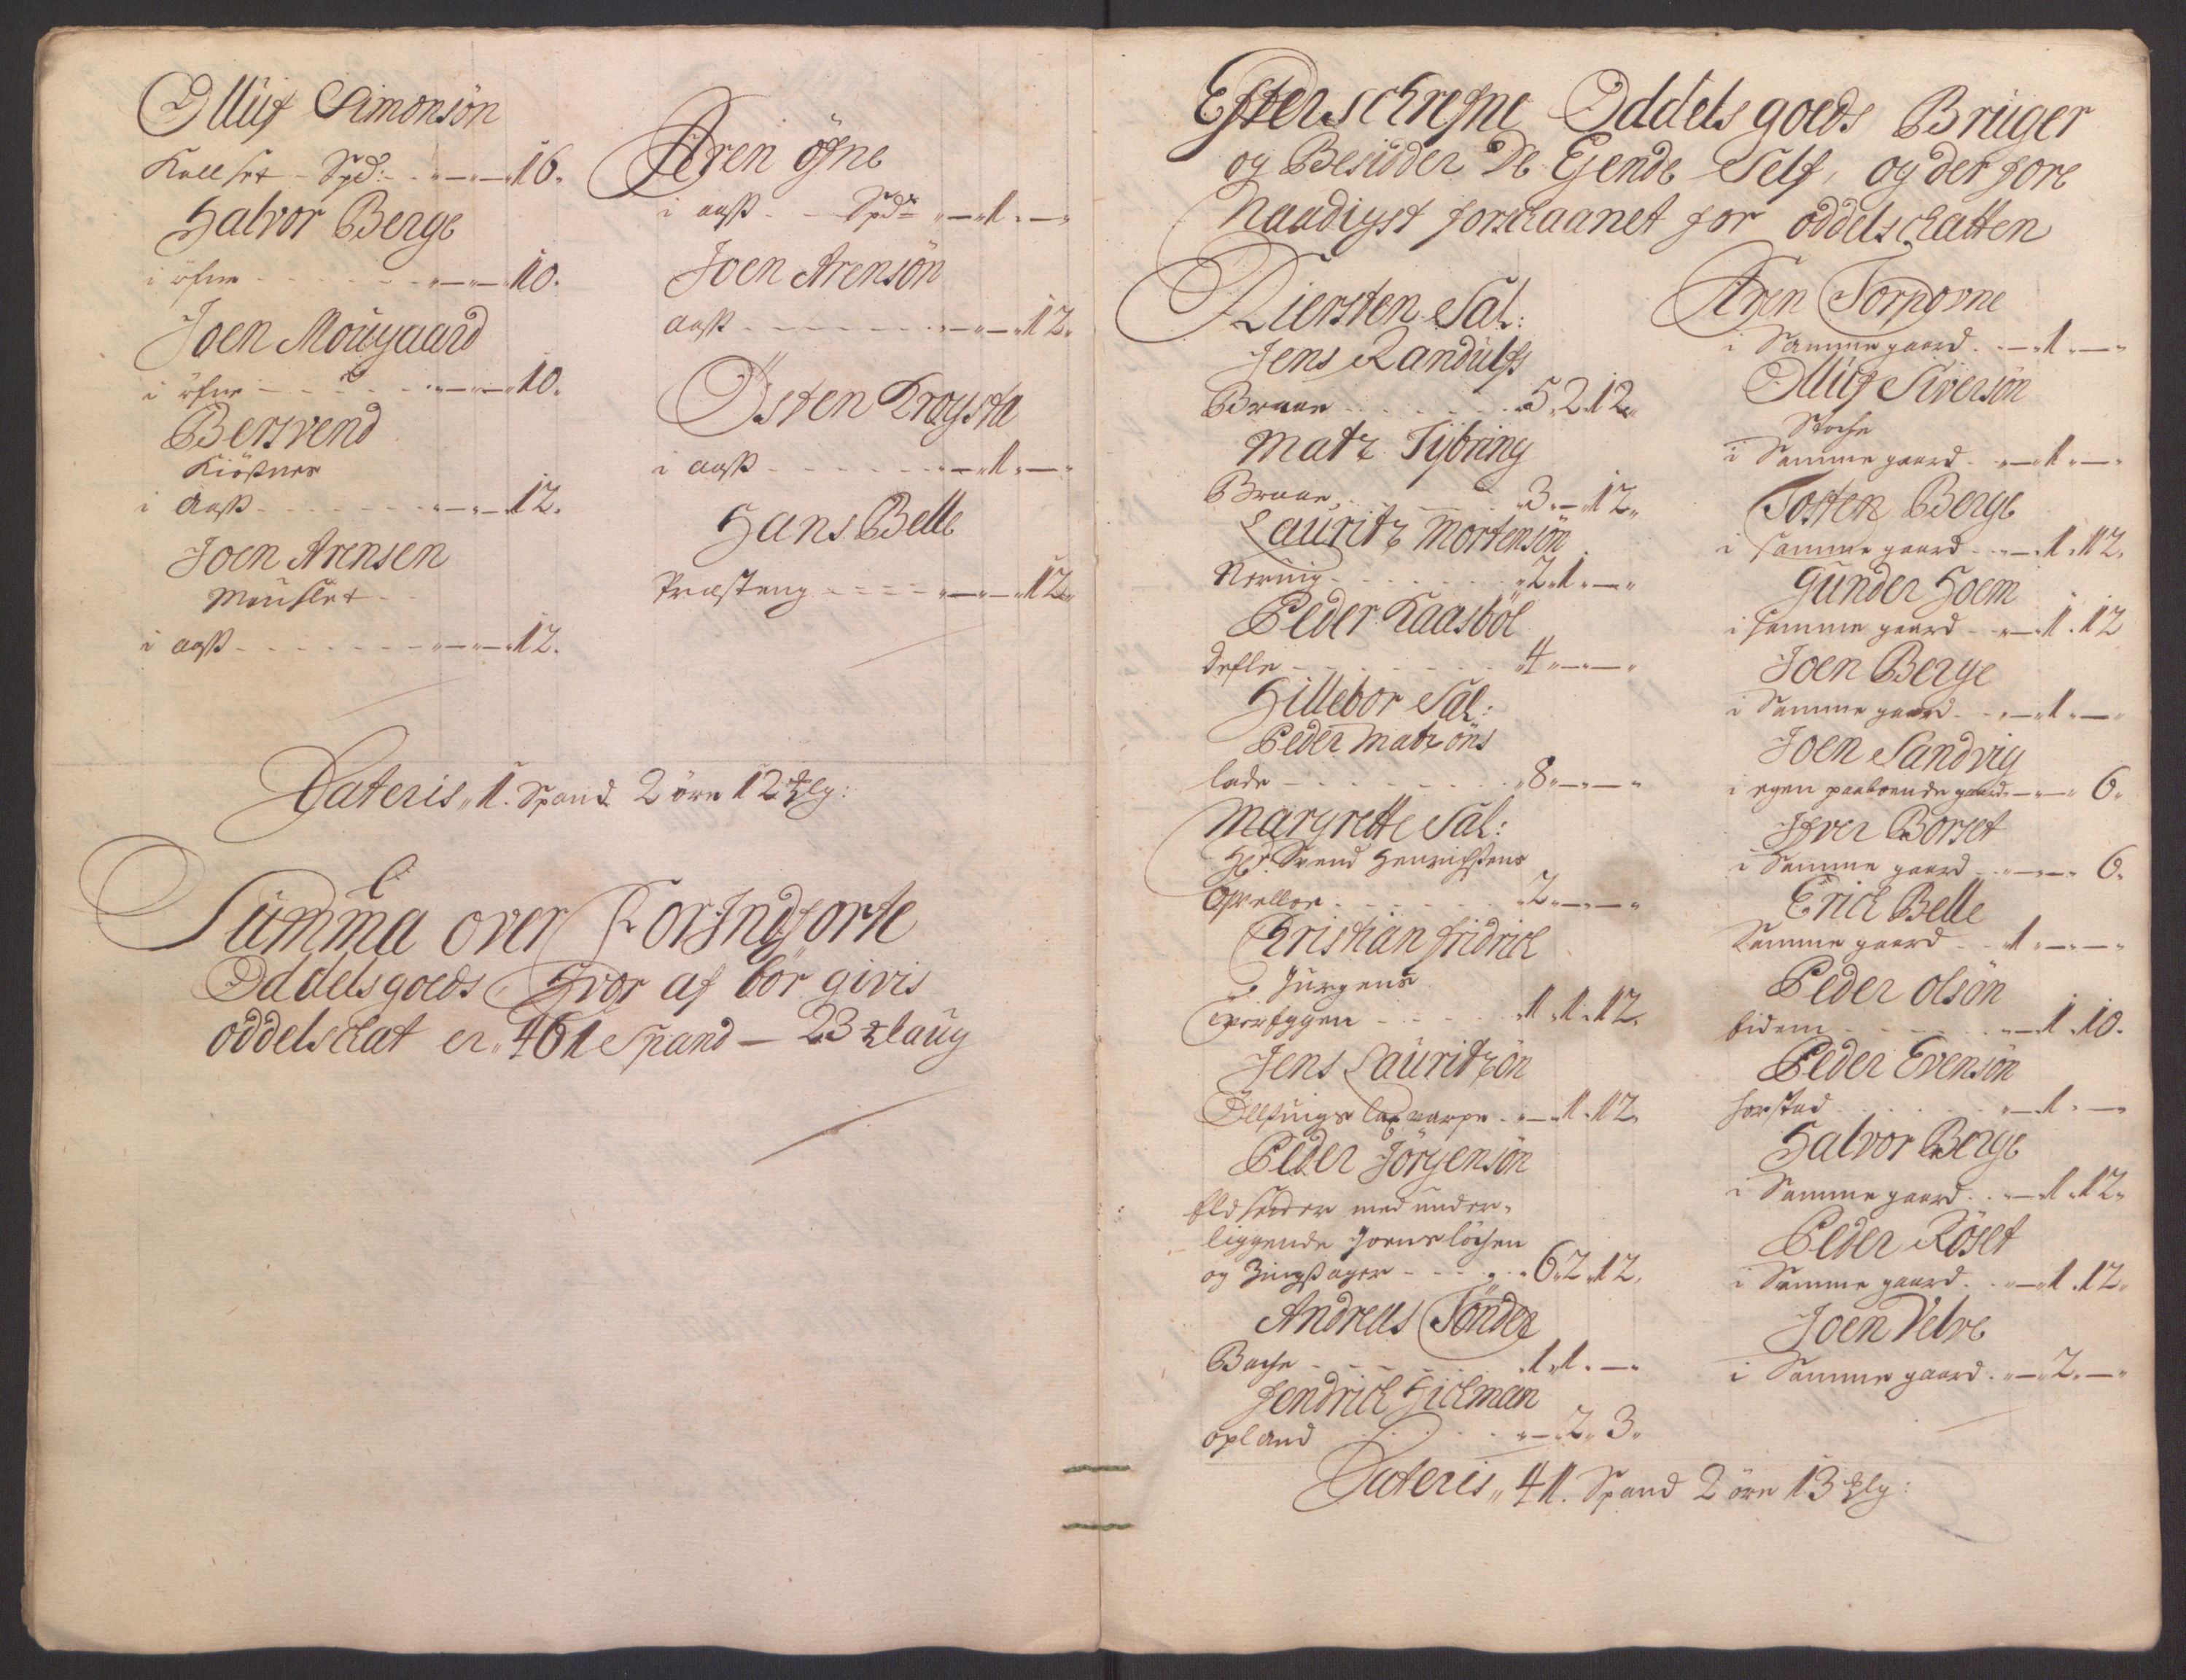 Olluf Simonsön
Kallset - Spd: - „ — „ — „ 16.
Halvor Berge
i öfne - - - „ — „ — „ 10.
Joen Mougaard
i öfne - - - „ — „ — „ 10.
Bersvend
Kiösnes
i Aaß - - - „ — „ — „ 12.
Joen Arensen
Mouslet
i aaß - - - „ — „ — „ 12.
Aren öfne
i aaß - - Spd: „ — „ 1 „ — „
Joen Arensön
aaß - - - „ — „ — „ 12.
Östen Krogsta
i aaß - - - „ — „ 1 „ — „
Hans Belle
Præsteng - - - „ — „ — „ 12„
Lateris „ 1. Spand 2 öre 12 lg:
Summa over Forindforte
Oddelsgoeds Hvor af bör givis
oddelskat er „ 461 Spand — 23 laug
Efterschrefne Oddelsgoeds Bruger
og Besidder De Ejende Self, og der fore
Naadigst forskaanet for oddelschatten
Kiersten Sal:
Jens Randulfs
Braae - - - „ 5 „ 2 „ 12 „
Matz Tybring
Braae - - - „ 3 „ — „ 12 „
Lauritz Mortensön
Nervig - - - „ 2 „ 1 „ — „
Peder Kaasböl
Defle - - - „ 4 „ — „ — „
Hillebor Sal:
Peder Matzöns
lade - - - „ 8 „ — „ — „
Margrette Sal:
Hr. Svend Henrichsens
- - - „ 2 „ — „ — „
Kristian fridrich
Jurgens
- - - 1 „ 1 „ 12.
Jens Lauritzön
laxvarpe - „ — „ 1 „ 12 „
Peder Jörgensön
med under-
liggende
og - - - „ 6 „ 2 „ 12 „
Andreas Tönder
Bache - - - „ 1 „ 1 „ — „
Hendrich Hickman
opland - - - „ — „ 2 „ 3 „
Aren Torpovne
i Samme gaard - „ — „ 1 „ — „
Olluf Siversön
Stoche
i Samme gaard - „ — „ 1 „ — „
Tosten Berge
i samme gaard - „ — „ 1 „ 12 „
Gunder Hoem
i samme gaard - „ — „ 1 „ 12
Joen Berge
i Samme gaard - „ — „ 1 „ — „
Joen Sandvig
i egen paaboende gaard „ — „ — „ 6 „
Ifver Borset
i Samme gaard - „ — „ — „ 6 „
Erich Belle
Samme gaard - - 1 „ — „ — „
Peder olsön
bidem - - - „ — „ 1 „ 10.
Peder Evensön
horstad - - - „ — „ 1 „ — „
Halvor Berge
i Samme gaard - „ — „ 1 „ 12 „
Peder Röset
i Samme gaard - „ — „ 1 „ 12 „
Joen Velve
i Samme gaard - „ — „ 2 „ — „
Lateris „ 41. Spand 2 öre 13 lg: